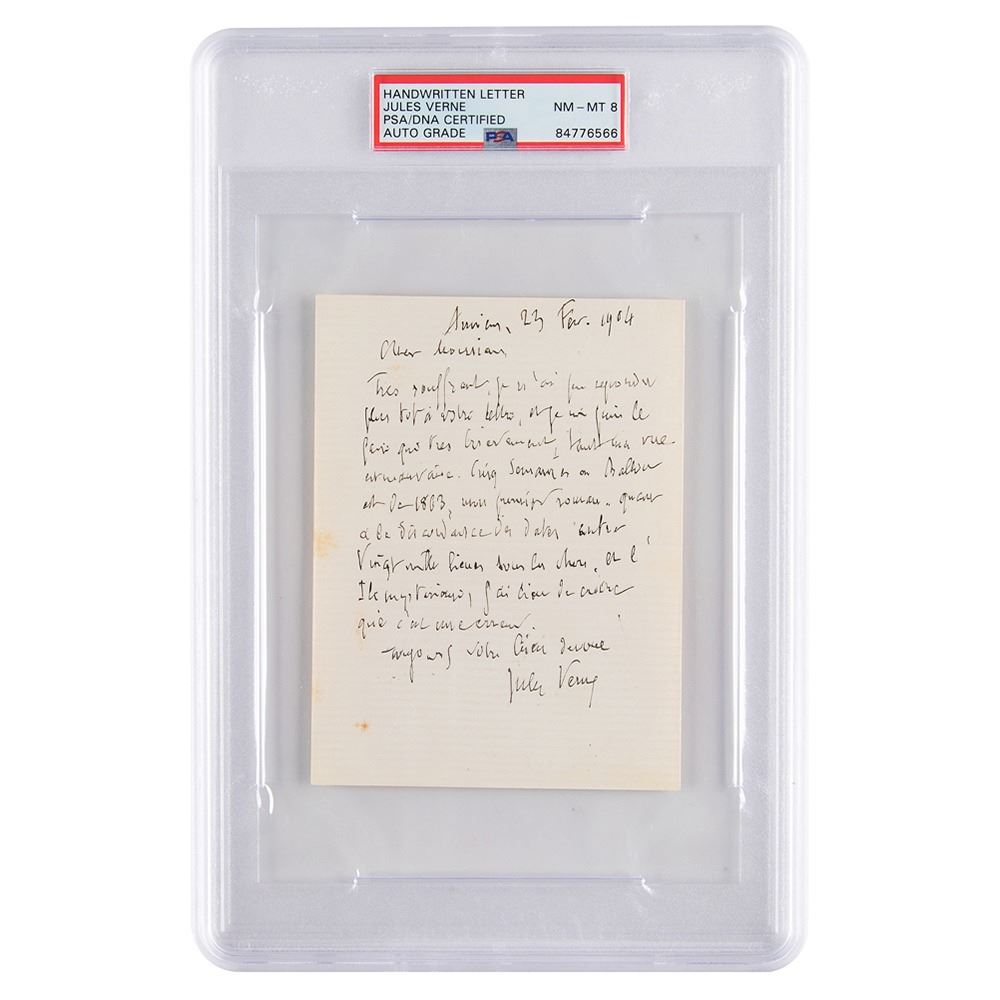 HANDWRITTEN LETTER
JULES VERNE NM – MT 8
PSA/DNA CERTIFIED
AUTO GRADE PSA 84776566
Amiens, 23 Fév. 1904
Cher Monsieur
Très souffrant, je n'ai pu répondre
plus tôt à votre lettre, et je ne puis le
faire que très brièvement, tant ma vue
est mauvaise. Cinq Semaines en Ballon
est de 1863, mon premier roman. quant
à la discordance des dates entre
Vingt mille lieues sous les Mers, et l'
Ile mystérieuse, j'ai lieu de croire
que c'est une erreur.
Toujours votre bien dévoué
Jules Verne